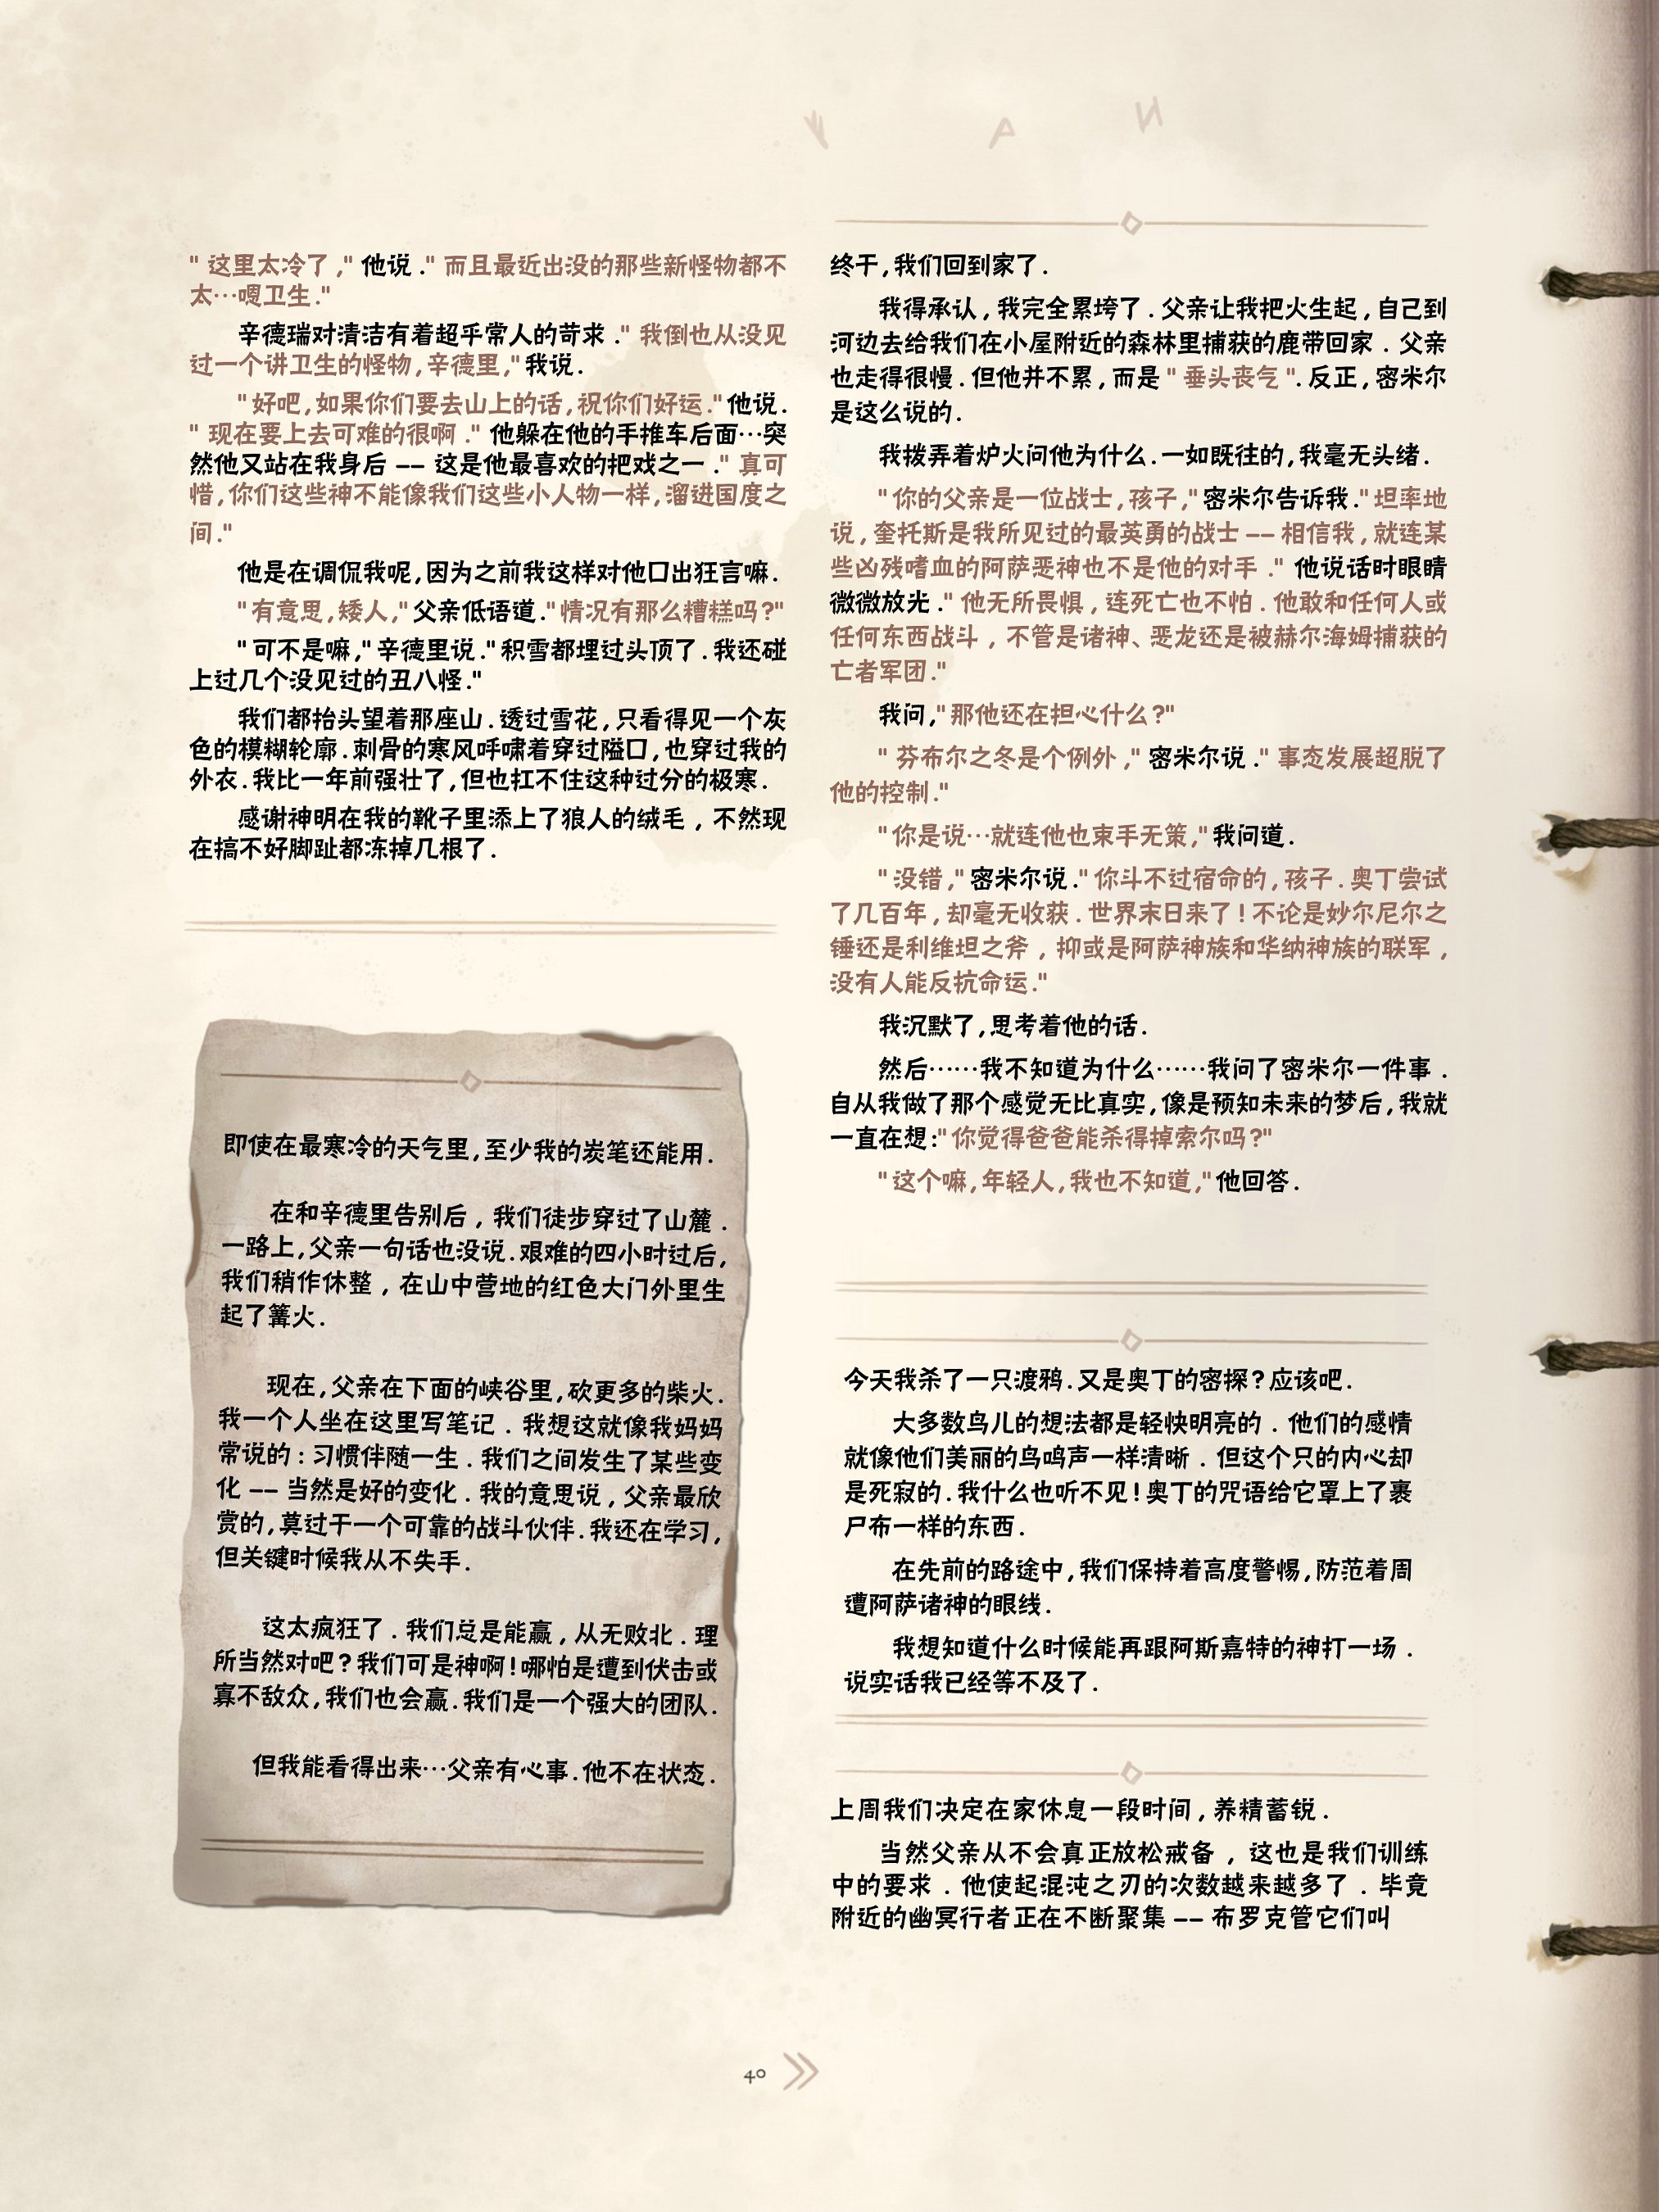 "这里太冷了,"他说."而且最近出没的那些新怪物都不
太…嗯卫生."
辛德瑞对清洁有着超乎常人的苛求."我倒也从没见
过一个讲卫生的怪物,辛德里,"我说.
"好吧,如果你们要去山上的话,祝你们好运."他说.
"现在要上去可难的很啊."他躲在他的手推车后面…突
然他又站在我身后 -- 这是他最喜欢的把戏之一."真可
惜,你们这些神不能像我们这些小人物一样,溜进国度之
间."
他是在调侃我呢,因为之前我这样对他口出狂言嘛.
"有意思,矮人,"父亲低语道."情况有那么糟糕吗?"
"可不是嘛,"辛德里说."积雪都埋过头顶了.我还碰
上过几个没见过的丑八怪."
我们都抬头望着那座山.透过雪花,只看得见一个灰
色的模糊轮廓.刺骨的寒风呼啸着穿过隘口,也穿过我的
外衣.我比一年前强壮了,但也扛不住这种过分的极寒.
感谢神明在我的靴子里添上了狼人的绒毛,不然现
在搞不好脚趾都冻掉几根了.
即使在最寒冷的天气里,至少我的炭笔还能用.
在和辛德里告别后,我们徒步穿过了山麓.
一路上,父亲一句话也没说.艰难的四小时过后,
我们稍作休整,在山中营地的红色大门外里生
起了篝火.
现在,父亲在下面的峡谷里,砍更多的柴火.
我一个人坐在这里写笔记.我想这就像我妈妈
常说的:习惯伴随一生.我们之间发生了某些变
化 -- 当然是好的变化.我的意思说,父亲最欣
赏的,莫过于一个可靠的战斗伙伴.我还在学习,
但关键时候我从不失手.
这太疯狂了.我们总是能赢,从无败北.理
所当然对吧?我们可是神啊!哪怕是遭到伏击或
寡不敌众,我们也会赢.我们是一个强大的团队.
但我能看得出来…父亲有心事.他不在状态.
终于,我们回到家了.
我得承认,我完全累垮了.父亲让我把火生起,自己到
河边去给我们在小屋附近的森林里捕获的鹿带回家.父亲
也走得很慢.但他并不累,而是"垂头丧气".反正,密米尔
是这么说的.
我拨弄着炉火问他为什么.一如既往的,我毫无头绪.
"你的父亲是一位战士,孩子,"密米尔告诉我."坦率地
说,奎托斯是我所见过的最英勇的战士 -- 相信我,就连某
些凶残嗜血的阿萨恶神也不是他的对手."他说话时眼睛
微微放光."他无所畏惧,连死亡也不怕.他敢和任何人或
任何东西战斗,不管是诸神、恶龙还是被赫尔海姆捕获的
亡者军团."
我问,"那他还在担心什么?"
"芬布尔之冬是个例外,"密米尔说."事态发展超脱了
他的控制."
"你是说…就连他也束手无策,"我问道.
"没错,"密米尔说."你斗不过宿命的,孩子.奥丁尝试
了几百年,却毫无收获.世界末日来了!不论是妙尔尼尔之
锤还是利维坦之斧,抑或是阿萨神族和华纳神族的联军,
没有人能反抗命运."
我沉默了,思考着他的话.
然后……我不知道为什么……我问了密米尔一件事.
自从我做了那个感觉无比真实,像是预知未来的梦后,我就
一直在想:"你觉得爸爸能杀得掉索尔吗?"
"这个嘛,年轻人,我也不知道,"他回答.
今天我杀了一只渡鸦.又是奥丁的密探?应该吧.
大多数鸟儿的想法都是轻快明亮的.他们的感情
就像他们美丽的鸟鸣声一样清晰.但这个只的内心却
是死寂的.我什么也听不见!奥丁的咒语给它罩上了裹
尸布一样的东西.
在先前的路途中,我们保持着高度警惕,防范着周
遭阿萨诸神的眼线.
我想知道什么时候能再跟阿斯嘉特的神打一场.
说实话我已经等不及了.
上周我们决定在家休息一段时间,养精蓄锐.
当然父亲从不会真正放松戒备,这也是我们训练
中的要求.他使起混沌之刃的次数越来越多了.毕竟
附近的幽冥行者正在不断聚集 -- 布罗克管它们叫
40